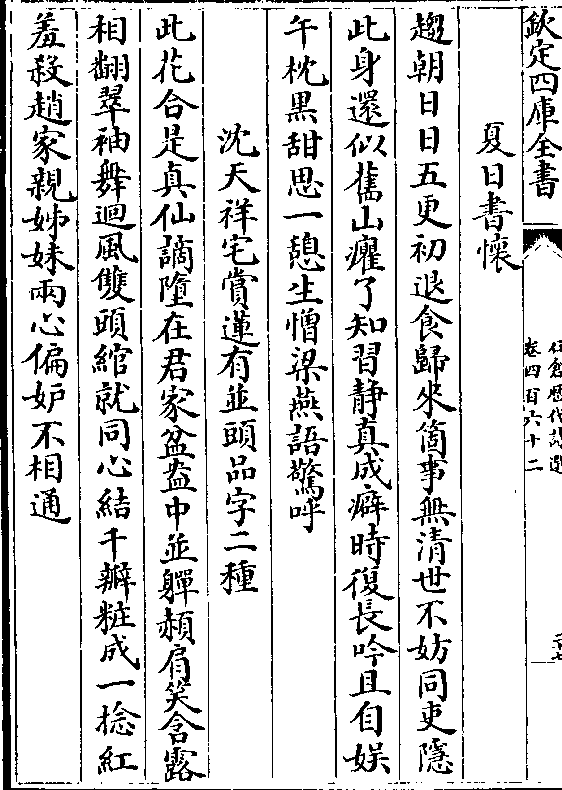 欽定四庫全書
御選歷代詩選
卷四百六十二
二十七
夏日書懷
趨朝日日五更初退食歸來箇事無清世不妨同吏隱
此身還似舊山癯了知習静真成癖時復長吟且自娱
午枕黒甜思一憩生憎梁燕語驚呼
沈天祥宅賞蓮有並頭品字二種
此花合是真仙謫墮在君家盆盎中並嚲頳肩笑含露
相翻翠袖舞迴風雙頭綰就同心結千瓣粧成一捻紅
羞殺趙家親姊妹兩心偏妒不相通